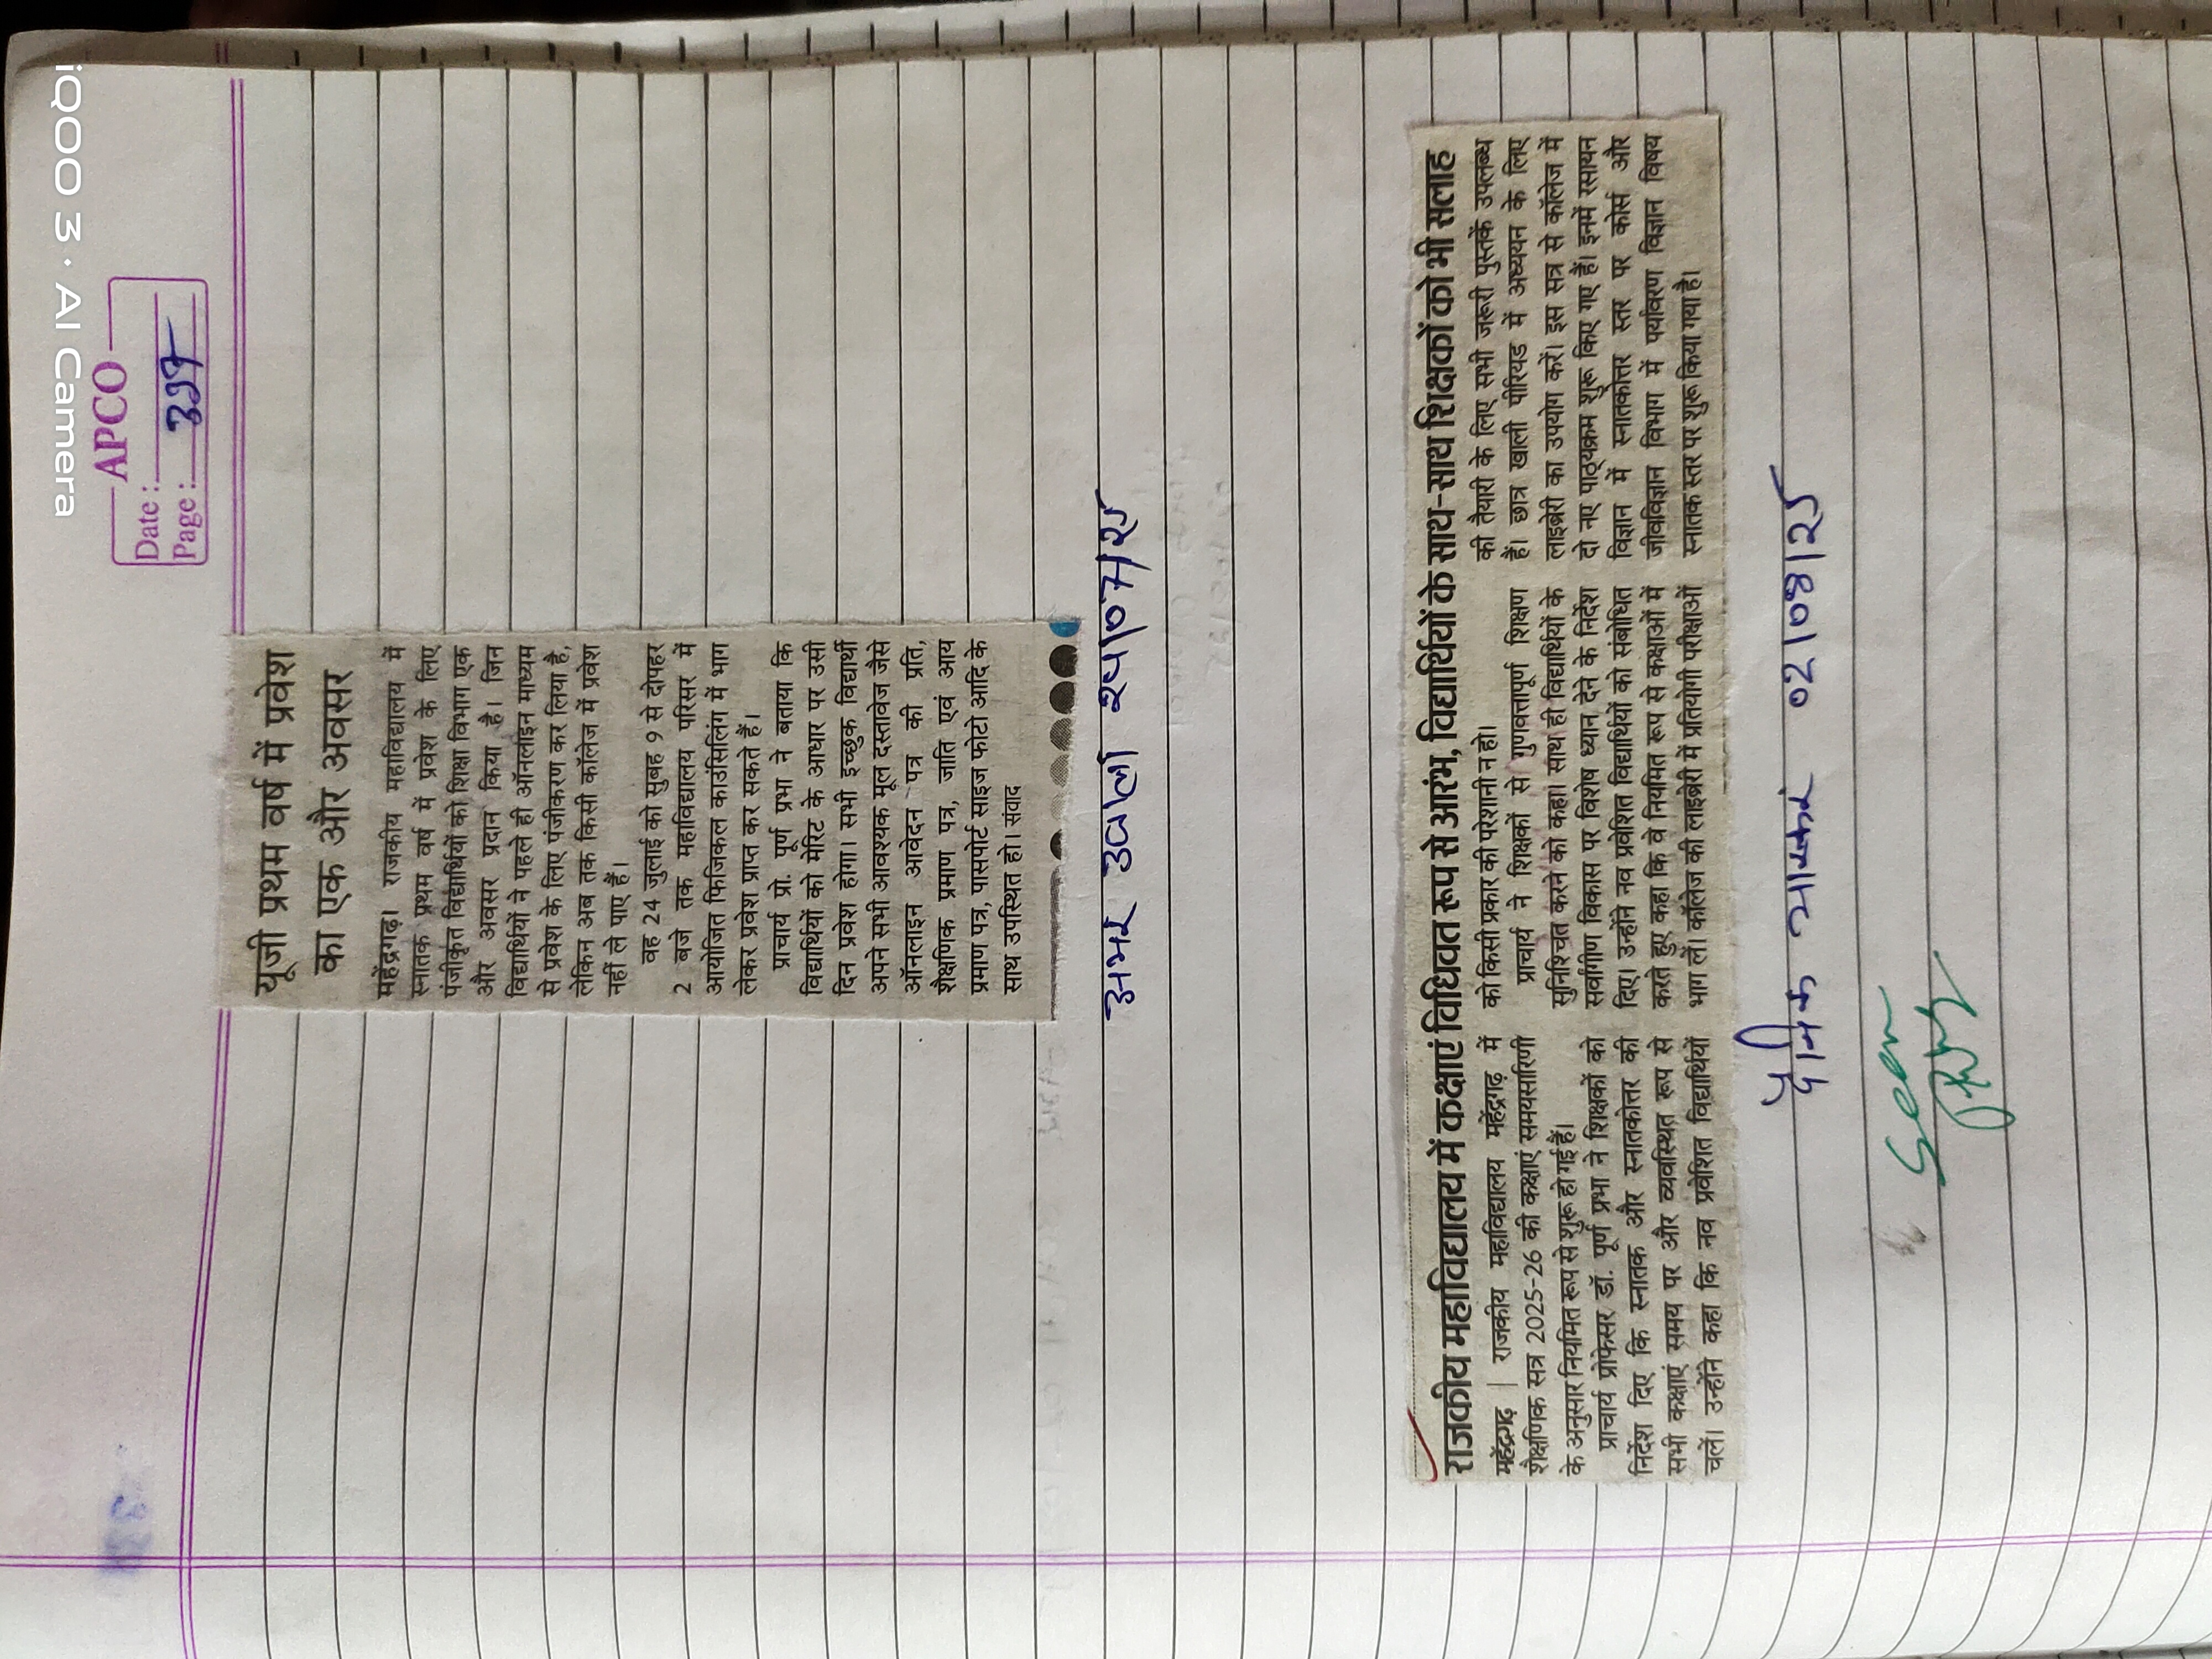 APCO
Date :
Page :
यूजी प्रथम वर्ष में प्रवेश
का एक और अवसर
महेंद्रगढ़। राजकीय महाविद्यालय में
स्नातक प्रथम वर्ष में प्रवेश के लिए
पंजीकृत विद्यार्थियों को शिक्षा विभाग एक
और अवसर प्रदान किया है। जिन
विद्यार्थियों ने पहले ही ऑनलाइन माध्यम
से प्रवेश के लिए पंजीकरण कर लिया है,
लेकिन अब तक किसी कॉलेज में प्रवेश
नहीं ले पाए हैं।
वह 24 जुलाई को सुबह 9 से दोपहर
2 बजे तक महाविद्यालय परिसर में
आयोजित फिजिकल काउंसिलिंग में भाग
लेकर प्रवेश प्राप्त कर सकते हैं।
प्राचार्य प्रो. पूर्ण प्रभा ने बताया कि
विद्यार्थियों को मेरिट के आधार पर उसी
दिन प्रवेश होगा। सभी इच्छुक विद्यार्थी
अपने सभी आवश्यक मूल दस्तावेज जैसे
ऑनलाइन आवेदन पत्र की प्रति,
शैक्षणिक प्रमाण पत्र, जाति एवं आय
प्रमाण पत्र, पासपोर्ट साइज फोटो आदि के
साथ उपस्थित हो। संवाद
अमर उजाला २४/०7/२५
राजकीय महाविद्यालय में कक्षाएं विधिवत रूप से आरंभ, विद्यार्थियों के साथ-साथ शिक्षकों को भी सलाह
महेंद्रगढ़ | राजकीय महाविद्यालय महेंद्रगढ़ में
शैक्षणिक सत्र 2025-26 की कक्षाएं समयसारिणी
के अनुसार नियमित रूप से शुरू हो गई हैं।
प्राचार्य प्रोफेसर डॉ. पूर्ण प्रभा ने शिक्षकों को
निर्देश दिए कि स्नातक और स्नातकोत्तर की
सभी कक्षाएं समय पर और व्यवस्थित रूप से
चलें। उन्होंने कहा कि नव प्रवेशित विद्यार्थियों
को किसी प्रकार की परेशानी न हो।
प्राचार्य ने शिक्षकों से गुणवत्तापूर्ण शिक्षण
सुनिश्चित करने को कहा। साथ ही विद्यार्थियों के
सर्वांगीण विकास पर विशेष ध्यान देने के निर्देश
दिए। उन्होंने नव प्रवेशित विद्यार्थियों को संबोधित
करते हुए कहा कि वे नियमित रूप से कक्षाओं में
भाग लें। कॉलेज की लाइब्रेरी में प्रतियोगी परीक्षाओं
की तैयारी के लिए सभी जरूरी पुस्तकें उपलब्ध
हैं। छात्र खाली पीरियड में अध्ययन के लिए
लाइब्रेरी का उपयोग करें। इस सत्र से कॉलेज में
दो नए पाठ्यक्रम शुरू किए गए हैं। इनमें रसायन
विज्ञान में स्नातकोत्तर स्तर पर कोर्स और
जीवविज्ञान विभाग में पर्यावरण विज्ञान विषय
स्नातक स्तर पर शुरू किया गया है।
दैनिक भास्कर 02/08/२५
Seen
iQOO 3 · AI Camera